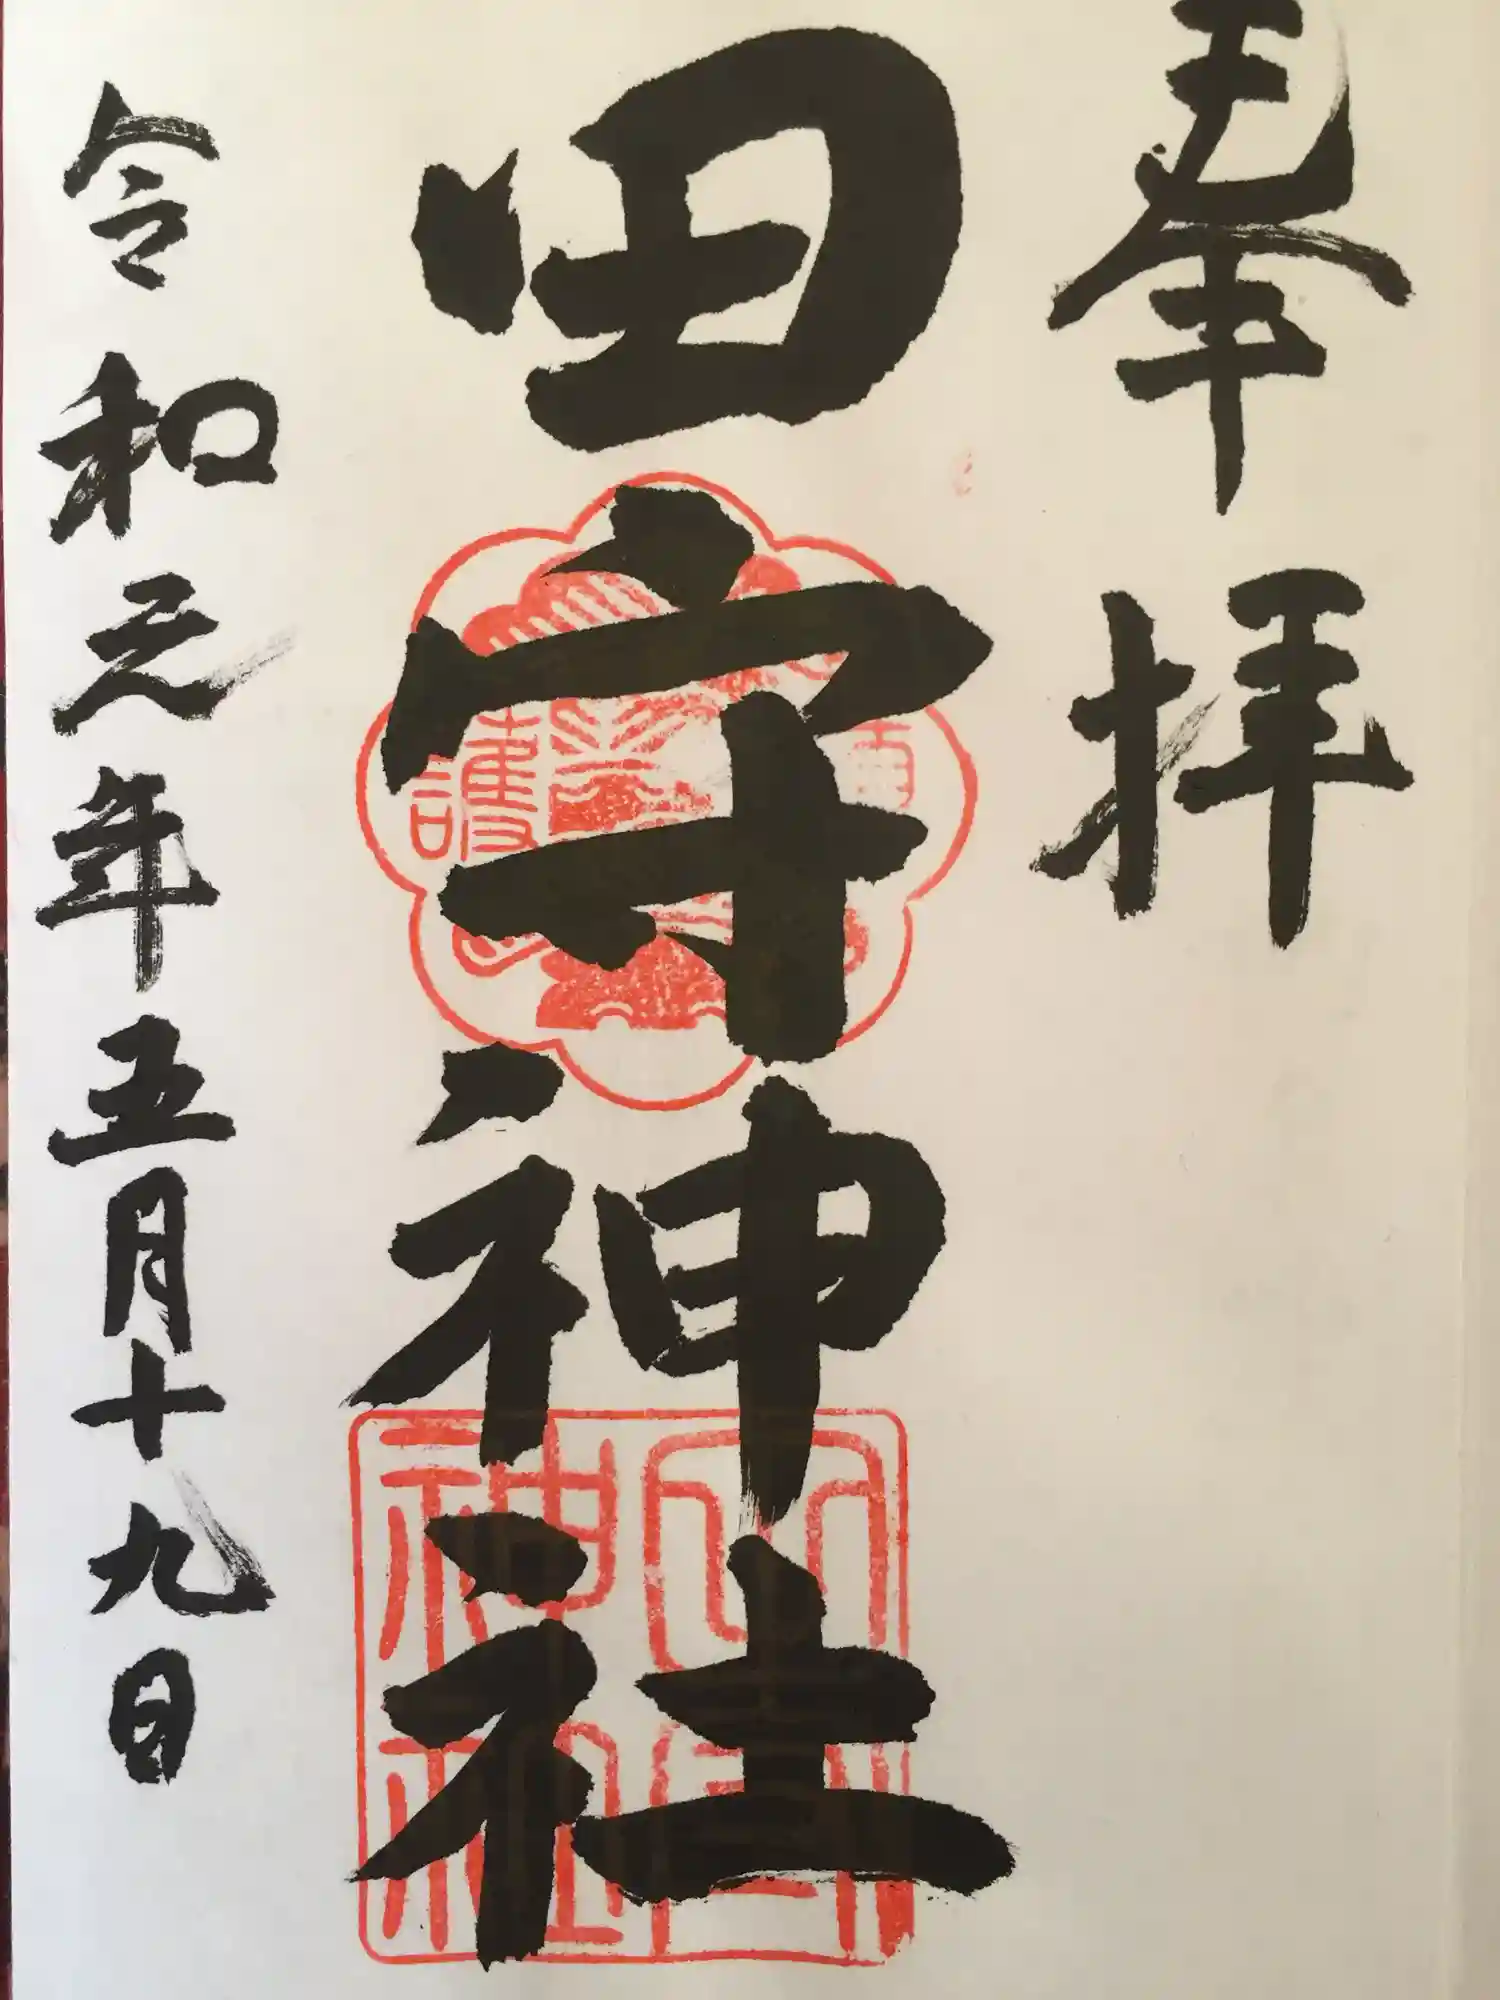 奉拝
田守神社
令和元年五月十九日
護